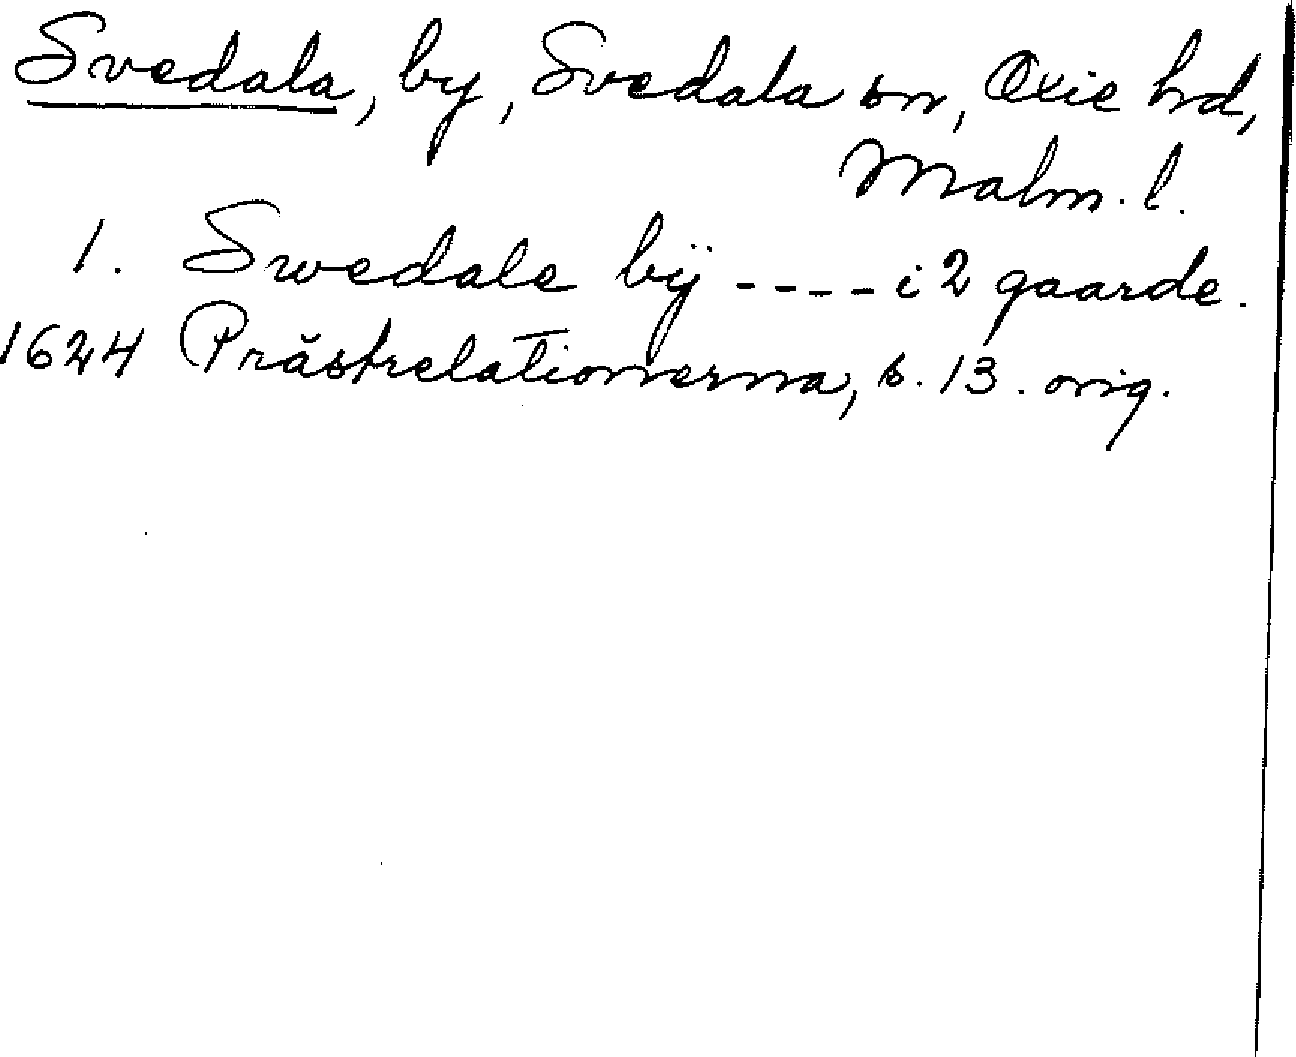 Svedala, by, Svedala sn, Oxie hd,
Malm. l.
1. Swedale bÿ ---- i 2 gaarde.
1624 Prästrelationerna, s. 13. orig.